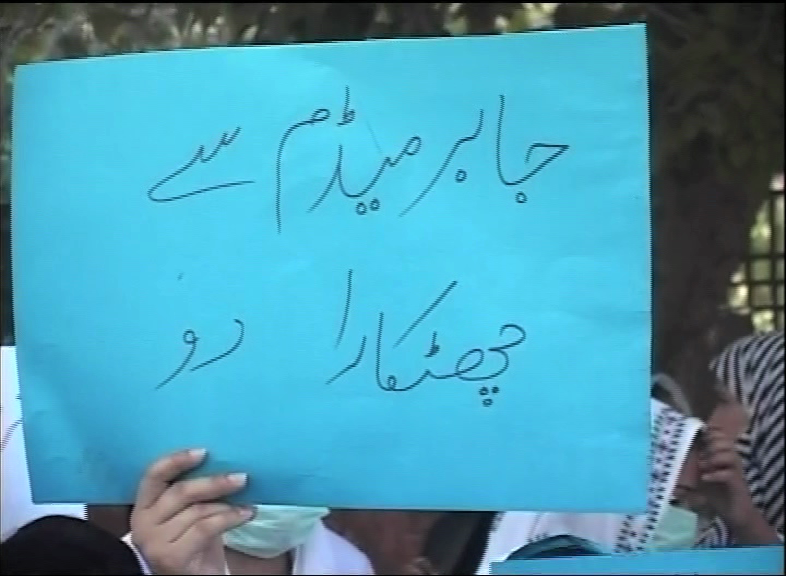 جابر میڈم سے
چھٹکارا دو